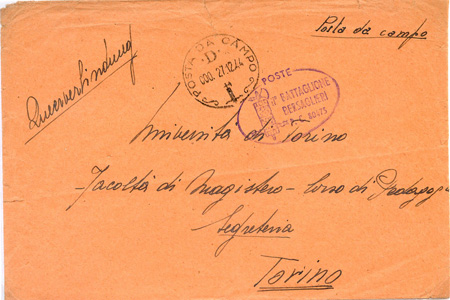 Posta da campo
Querverbindung
POSTA DA CAMPO
·D·
27.12.44
POSTE
BATTAGLIONE
BERSAGLIERI
Università di Torino
- Facoltà di Magistero - Corso di Pedagog
Segreteria
Torino